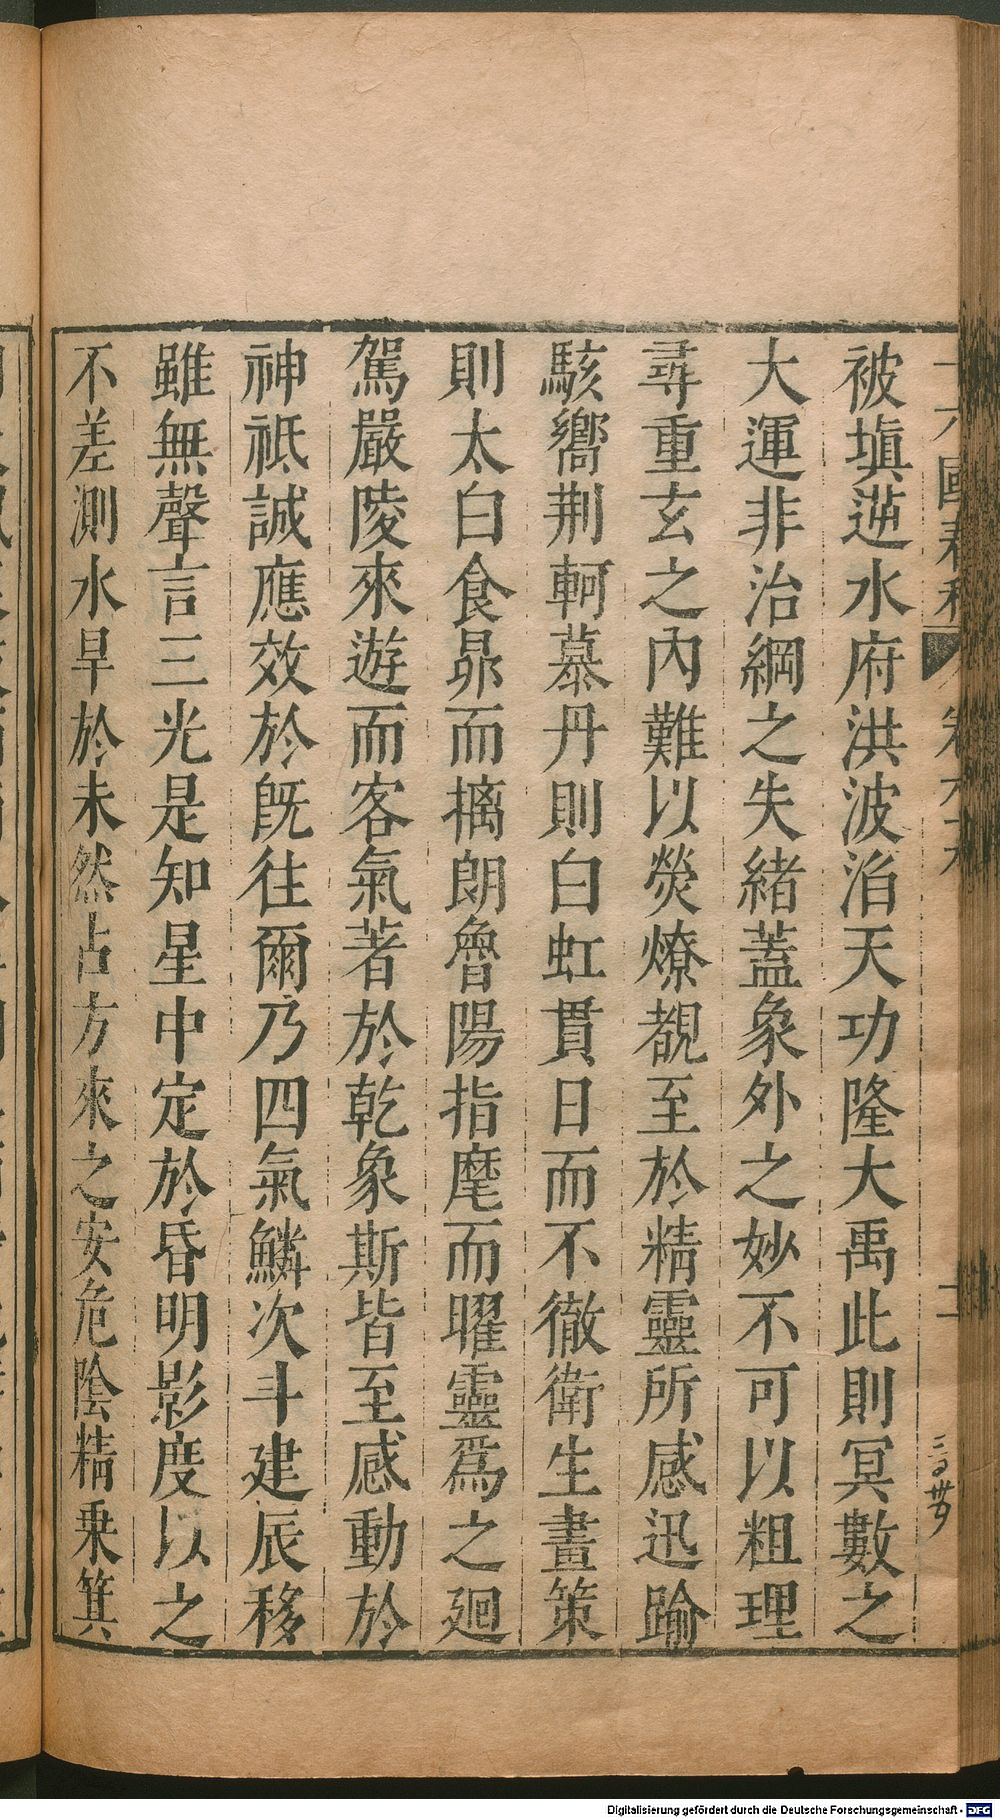 十六國春秋 卷六十 二
被塡逆水府洪波滔天功隆大禹此則冥數之
大運非治綱之失緒蓋象外之妙不可以粗理
尋重玄之內難以熒燎覩至於精靈所感迅踰
駭嚮荆軻慕丹則白虹貫日而不徹衛生畫策
則太白食昴而摛朗魯陽指麾而曜靈爲之廻
駕嚴陵來遊而客氣著於乾象斯皆至感動於
神祗誠應效於旣往爾乃四氣鱗次斗建辰移
雖無聲言三光是知星中定於昏明影度以之
不差測水旱於未然占方來之安危陰精乗箕
Digitalisierung gefördert durch die Deutsche Forschungsgemeinschaft - DFG